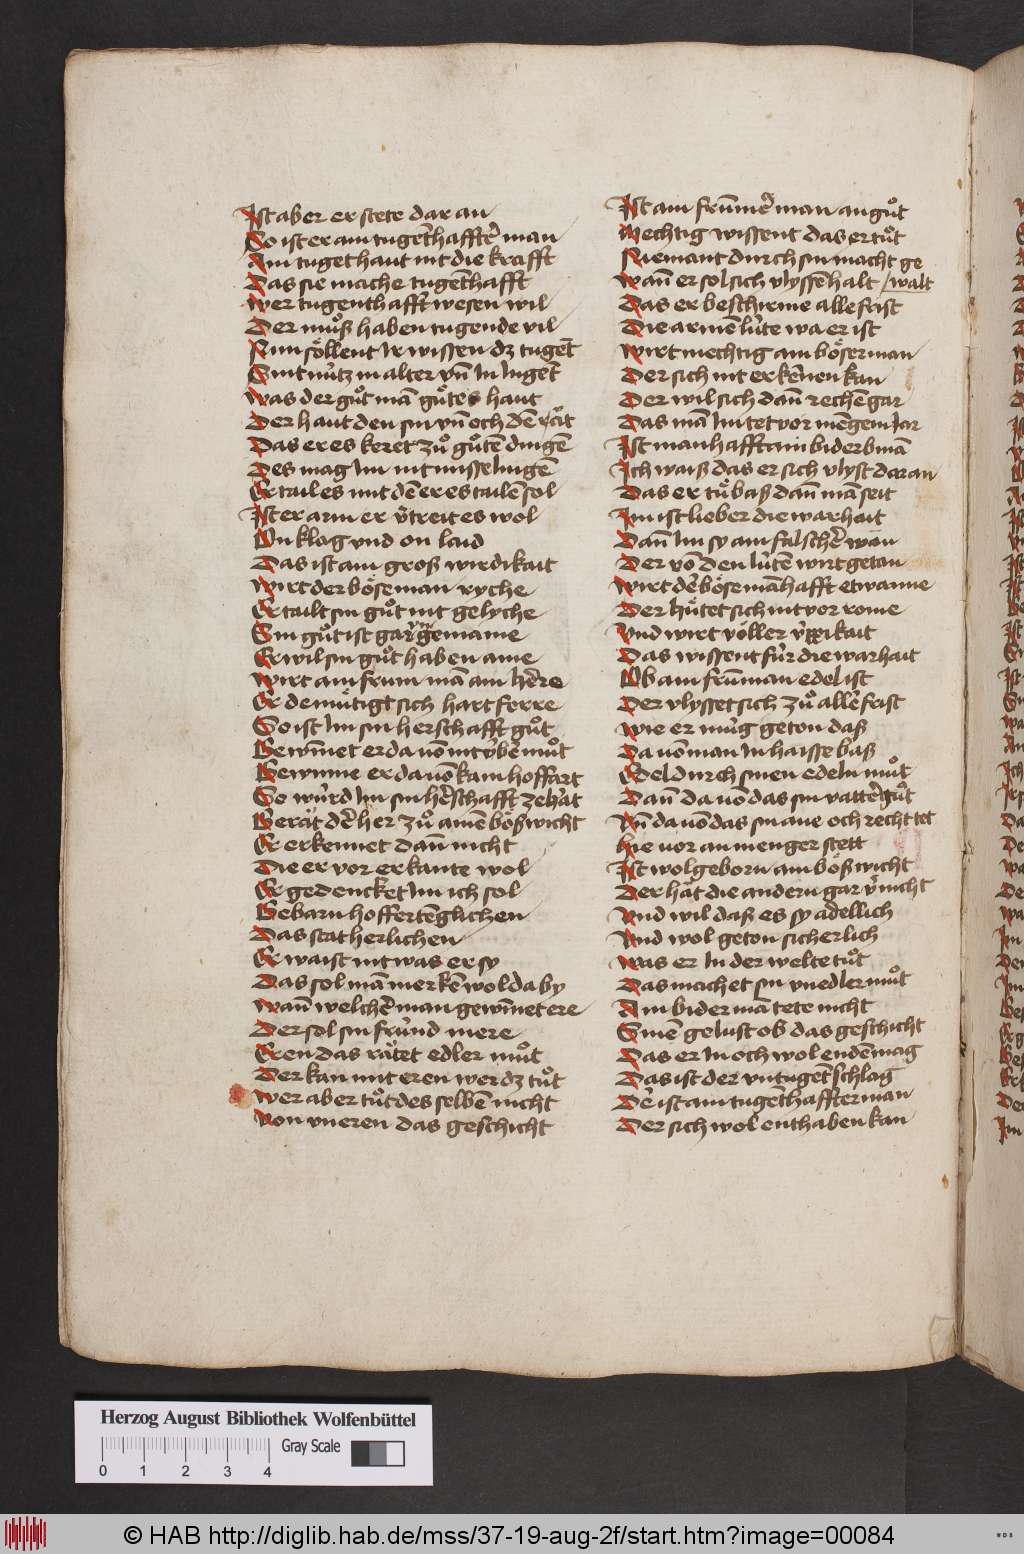 Ist aber er stete dar an
So ist er am tugēthafftē man
Am tuget haut nit die krafft
Das sie mache tugēthafft
wer tugenthafft wesen wil
Der můß haben tugende vil
Nun söllent Ir wissen dz tugēt
Sint nǔtz in alter vn̄ In Iugēt
was der gůt mā gůtes haut
Der haut den sin vn̄ och dē rǎt
Das er es keret zů gůtē dingē
Des mag Im nit misselingē
Er tail es mit dē er es tailē sol
Ist er arm er v̓treit es wol
On klag vnd on laid
Das ist am groß wirdikait
wirt der böse man ryche
Er tailt sin gůt nit gelyche
Sin gůt ist gar gemaine
Er wil sin gůt haben aine
wirt am frum mā am hēre
Er demütigt sich hart ferre
So ist Im sin herschafft gůt
Gewin̄et er da uō nit v̓bē můt
Gewinne er da uō kain hoffart
So wǔrd Im sin hēschafft zehǎt
Gerät dē her zů ainē bößwicht
Er erkennet dan̄ nicht
Die er vor erkante wol
Er gedencket Im ich sol
Gebarn hoffertēglichen
Das stat herlichen
Er waist nit was er sy
Das sol mā merkē wol da by
wan̄ welchē man gewin̄et ere
Der sol sin frǔnd mere
Eren das rätet edler můt
Der kan mit eren wer dz tůt
wer aber tůt des selbē nicht
von vneren das geschicht
Ist am frūmē man an gůt
Mechtig wissent das er tůt
Niemant durch sin macht ge
wan̄ er sol sich vlyssē halt /walt
Das er beschirme alle frist
Die armē lǔte wa er ist
wirt mechtig am böser man
Der sich nit erkēnen kan
Der wil sich dan̄ rechē gar
Das mā Im tet vor mēgem Iar
Ist manhafft ain biderb mā
Ich waiß das er sich vlyst dar an
Das er tů baß dan̄ mā seit
Im ist lieber die warhait
Dan̄ Im sy am falschē wān
Der vō den lǔtē wirt getan
wirt dē böse māhafft etwanne
Der hůtet sich nit vor rome
vnd wirt völler v̓ppikait
Das wissent für die warhait
Ob am frūman edel ist
Der vlysset sich zů allē frist
wie er müg geton daß
Da uō man In haisse baß
Edel durch sinen edeln můt
Dan̄ da uō das sin vattē gůt
Vn̄ da uō das sin ane och recht tet
hie vor an menger stett
Ist wol geborn am böß wicht
Der hǎt die andern gar v̓nicht
vnd wil daß es sy adellich
Vnd wol geton sicherlich
was er In der welte tůt
Das machet sin vnedler můt
Am bider mā tete nicht
Sinē gelust ob das geschicht
Das er In och wol endē mag
Das ist der vntugēt schlag
Dē ist am tugēthaffter man
Der sich wol enthaben kan
Herzog August Bibliothek Wolfenbüttel
Gray Scale
0 1 2 3 4
© HAB http://diglib.hab.de/mss/37-19-aug-2f/start.htm?image=00084